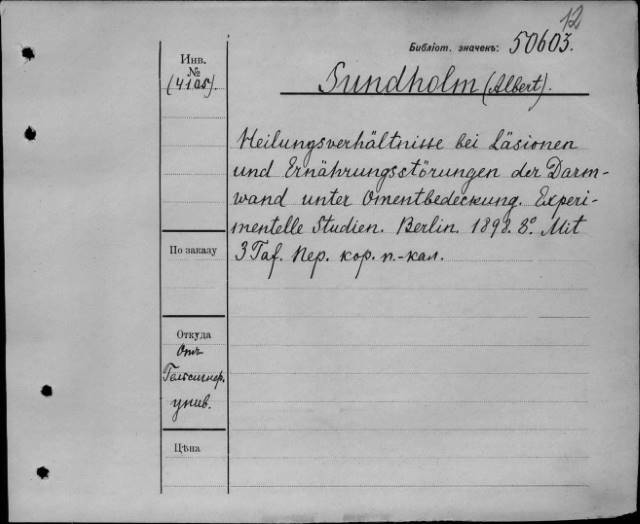 12
Библіот. значекъ: 50603.
Инв.
№
(4105).
Sundholm (Albert).
Heilungsverhältnisse bei Läsionen
und Ernährungsstörungen der Darm-
wand unter Omentbedeckung. Experi-
mentelle Studien. Berlin. 1898. 8°. Mit
3 Taf. Пер. кор. п.-кал.
По заказу
Откуда
Отъ
Гельсингер.
унив.
Цѣна